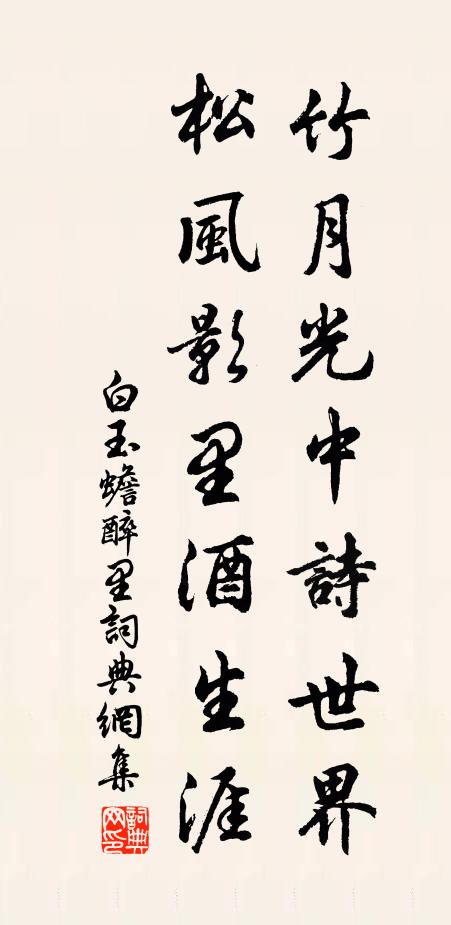 竹月光中詩世界
松風影里酒生涯
白玉蟾醉里詞典網集
詞典網印